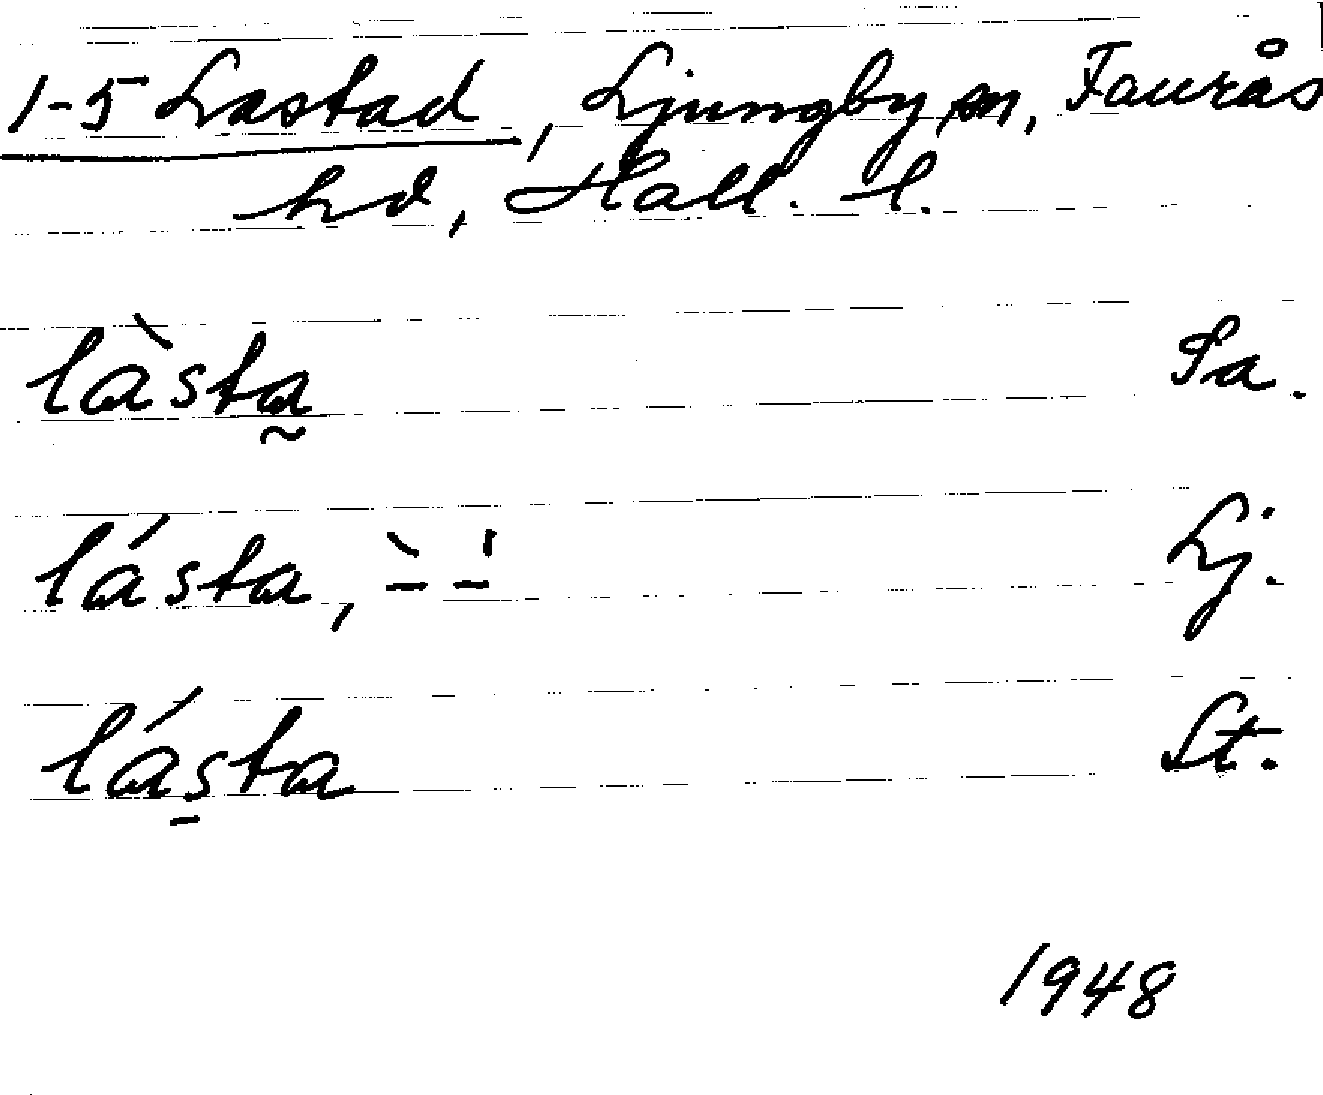 1-5 Lastad, Ljungby sn, Faurås
hd, Hall. l.
làsta̰ Sa.
lásta, ` – ' – Lj.
lás̱ta St.
1948